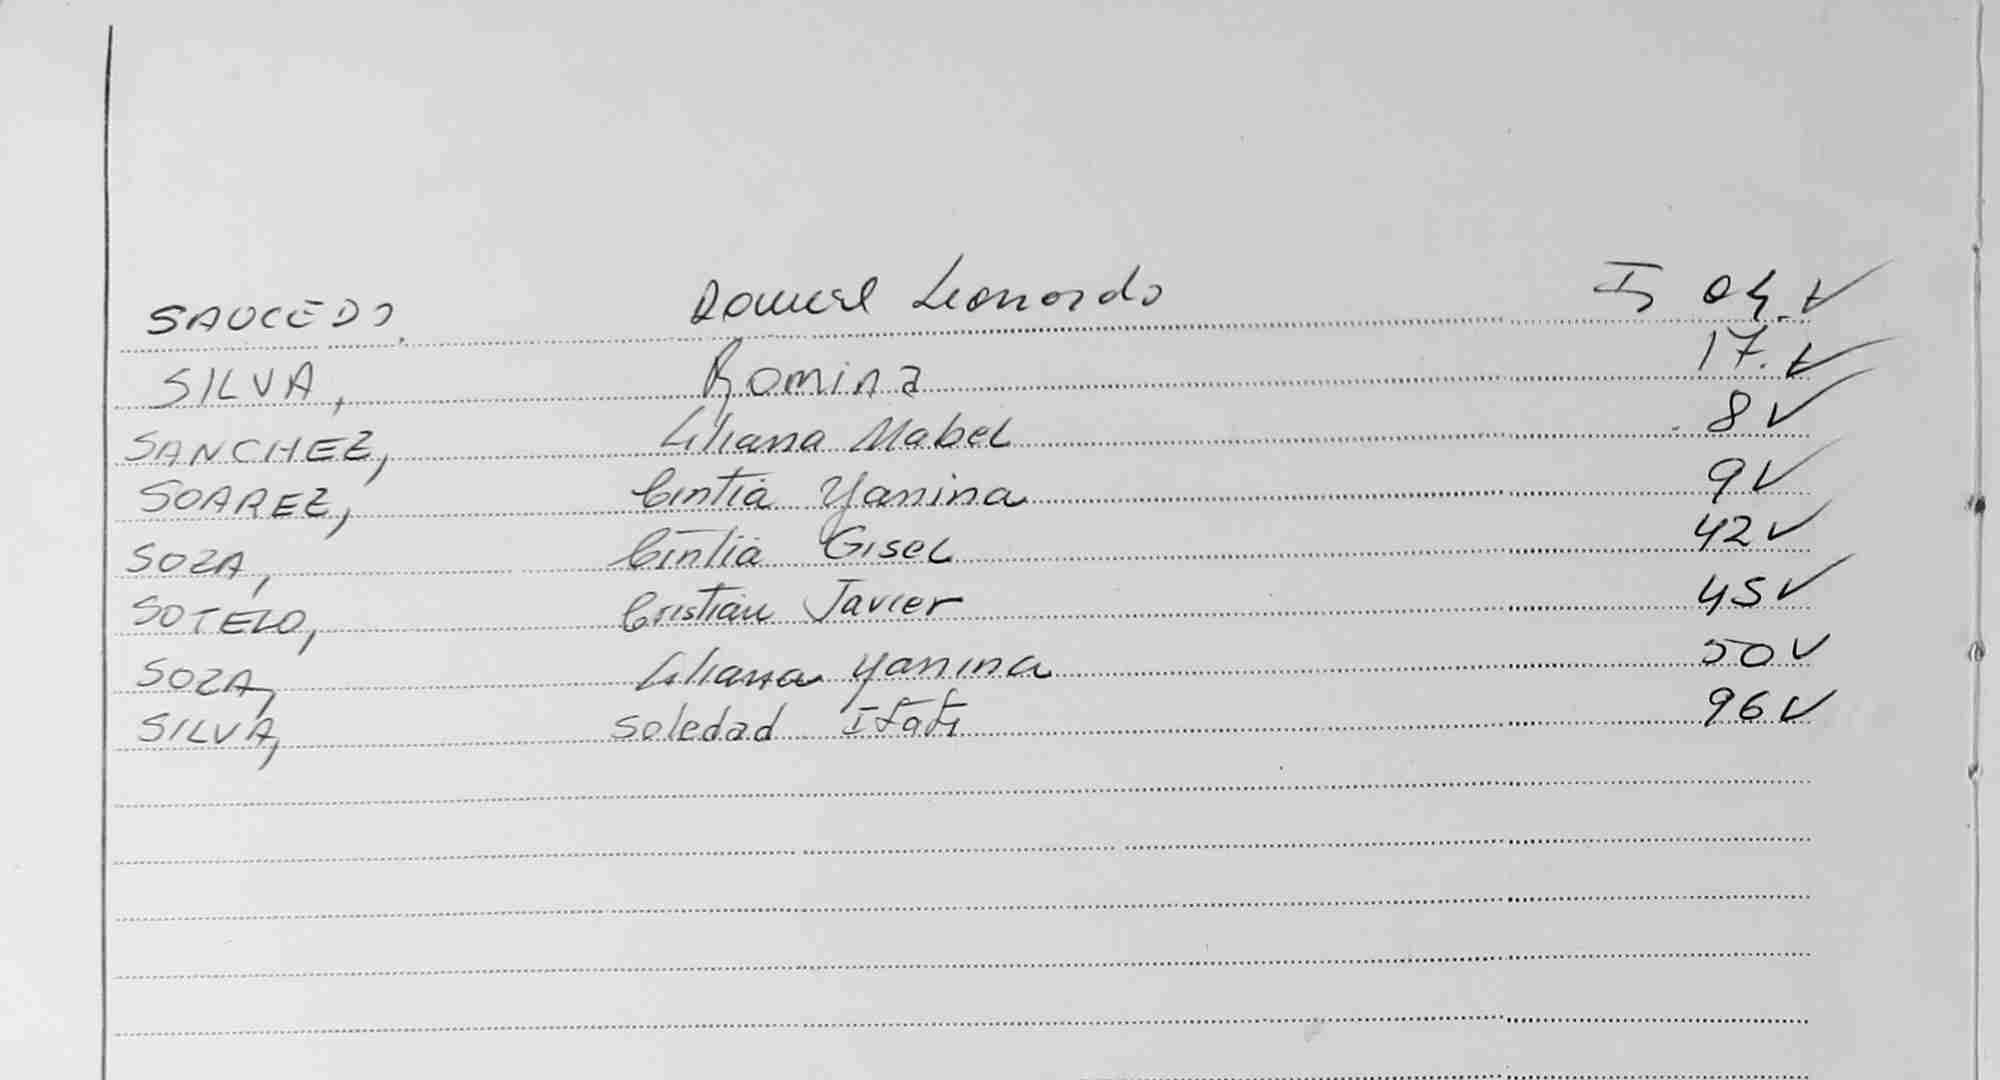 SAUCEDO, Daniel Leonardo I 04. ✓
SILVA, Romina 17. ✓
SANCHEZ, Liliana Mabel 8 ✓
SOAREZ, Cintia Yanina 9 ✓
SOZA, Cintia Gisel 42 ✓
SOTELO, Cristian Javier 45 ✓
SOZA, Liliana Yanina 50 ✓
SILVA, Soledad Itatí 96 ✓